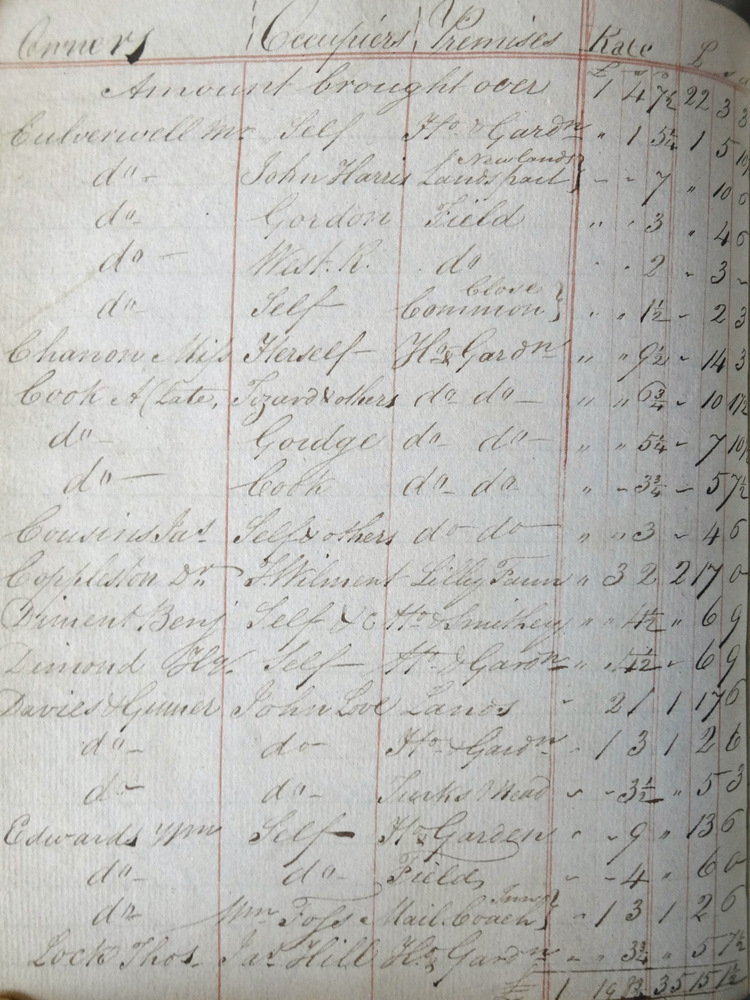 Owners Occupiers Premises Rate £
Amount brought over 1 4 7½ 22 3 3
Culverwell Mr Self Ho & Gardn " 1 5¼ 1 5
do John Harris Newlands Lands part } - - 7 " 10 6
do Gordon Field " " 3 " 4 6
do West. R. do " " 2 " 3 -
do Self Close Common } " " 1½ - 2 3
Chanon Miss Herself Ho & Gardn " " 9½ - 14 3
Cook A (Late, Tizard & others do do " " 6¾ - 10 1½
do Goidge do do " " 5¼ - 7 10½
do Cook do do " - 3¾ - 5 7½
Cousins Jas Self & others do do " " 3 - 4 6
Coppleston Dr T Wilment Lilley Farm " 3 2 2 17 0
Diment Benj Self &c Ho & Smithery " " 4½ " 6 9
Dimond Hy. Self Ho & Gardn " " 4½ - 6 9
Davies & Gumer John Love Lands " 2 1 1 17 6
do do Ho & Gardn - 1 3 1 2 6
do do Turks Mead - - 3½ " 5 3
Edwards Wm Self Ho & Garden " - 9 " 13 6
do do Field - - 4 " 6 0
do Wm Foss Mail Coach Inn } - 1 3 1 2 6
Lock Thos. Jas Hill Ho & Gardn - " 3¾ " 5 7½
£ 1 19 35 15 1½